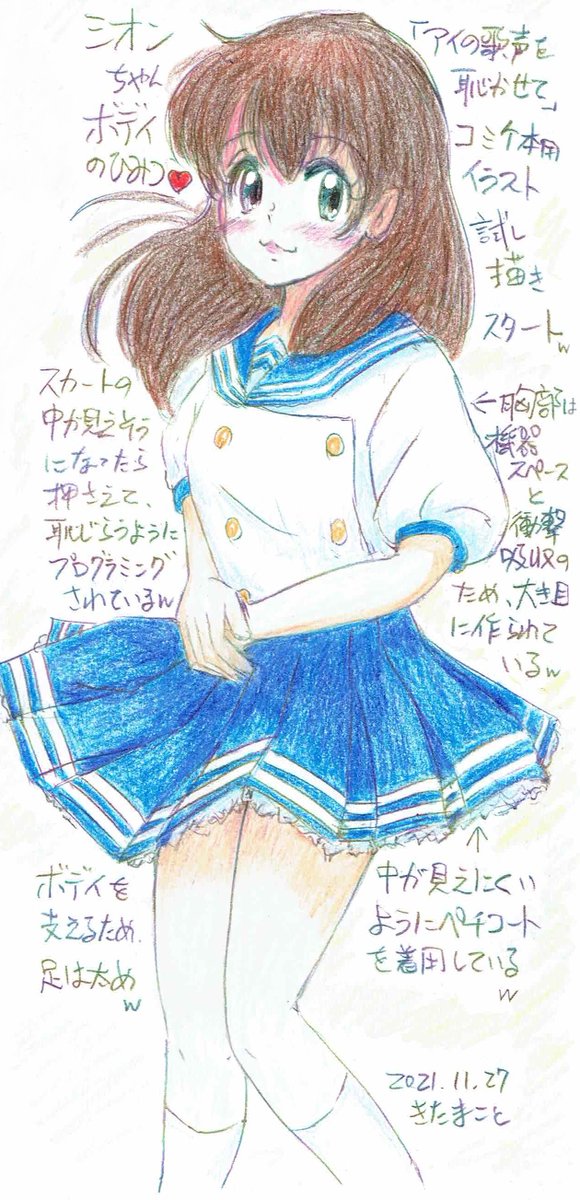 ミオン
ちゃん
ボディ
のひみつ
「アイの歌声を
恥かせて」
コミケ本用
イラスト
試し
描き
スタートw
スカートの
中が見えそう
になったら
押さえて、
恥じらうように
プログラミング
されているw
←胸部は
機器
スペース
と
衝撃
吸収の
ため、大き目
に作られて
いるw
ボディを
支えるため、
足は太め
w
↑
中が見えにくい
ようにペチコート
を着用している
w
2021.11.27
きたまこと